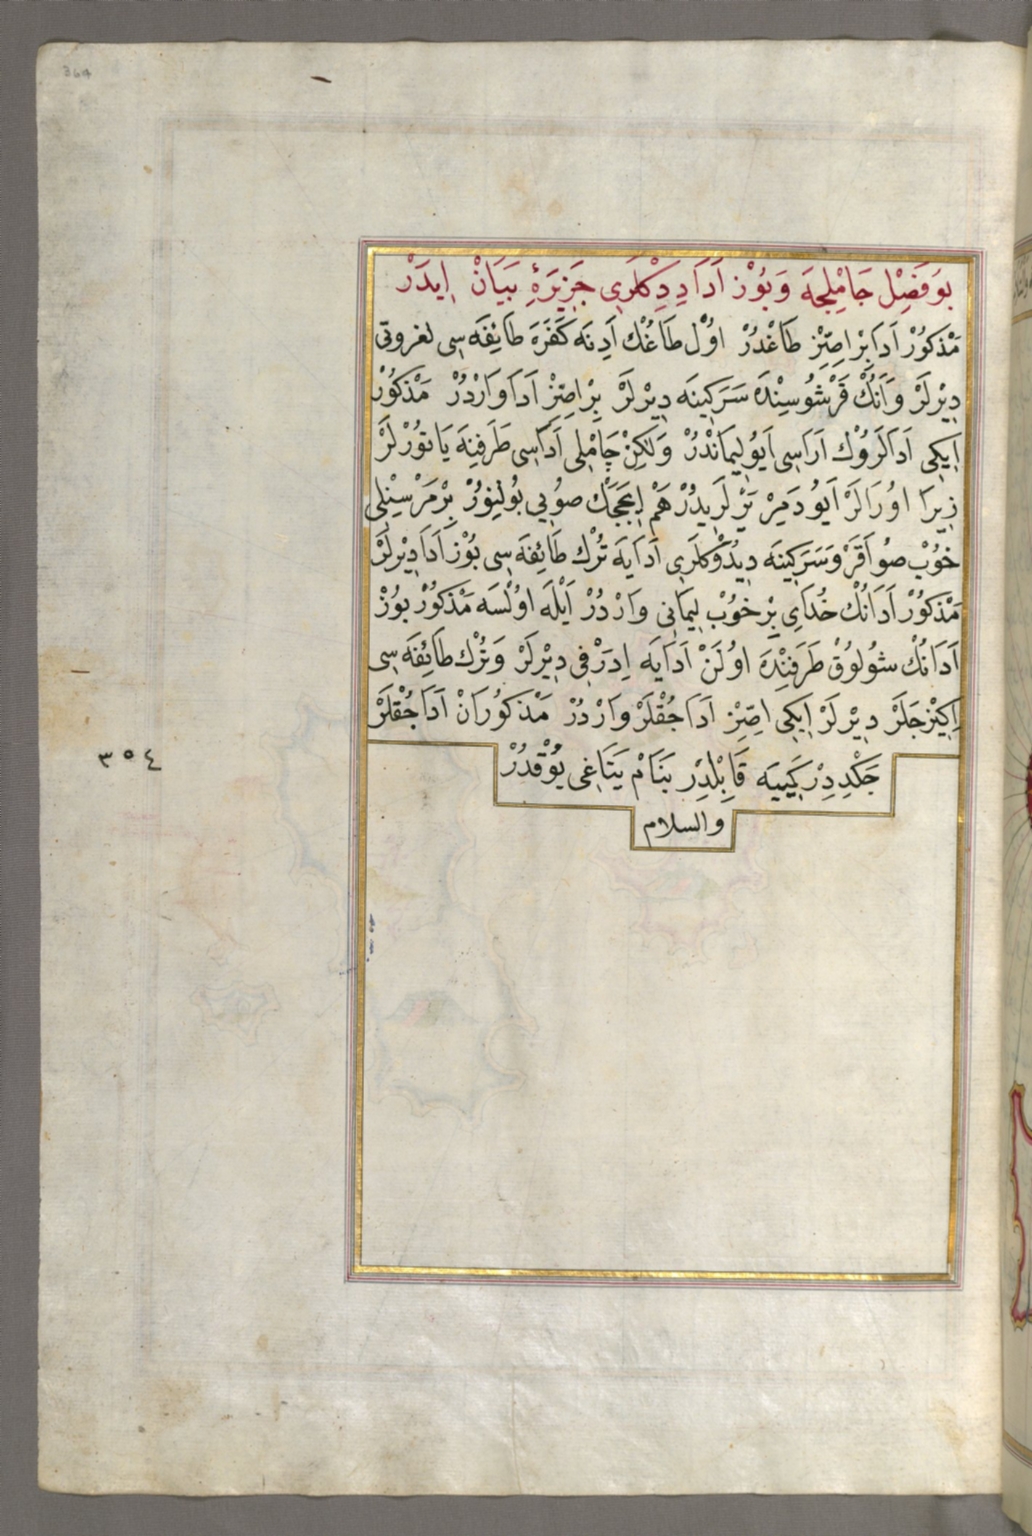 بو فَصِل جَامِلِجه وَ بُوْز اَدَا دِدِكْلَرِي جَزِيرَهٔ بَيَانْ اِيدَرْ
مَذكوُرْ اَدَا بِرْ اصّزِ طَاغْدُرْ اوُل طَاغُكْ اَدِنَه كَفَرَه طَايِفَه سِى لغروتى
دِيْرلَرْ وَ اَنُكْ قَرْشُوسِنْدَه سَرَكِينَه دِيْرلَرْ بِرْ اصّزِ اَدَا وَارْدُرْ مَذْكوُرْ
اِيكِي اَدَالَرُوُكْ اَرَاسِى اَيُو لِيمَانْدُرْ وَلكِنْ چَامْلِى اَدَاسِى طَرَفِنِه يَاتوُرْلَرْ
زِيرَا اوُرَالَرْ اَيُو دَمِرْ يَرْلَرِيدُرْ هَمْ اِيچَجَكْ صوُيِى بوُلنِوُرْ بِرْمَرْسِيْنلِى
خوُبْ صُو اَقَرْ وَ سَرَكِينَه دِيدُوكلَرِى اَدَايَه تُرْك طَائِفَه سِى بوُزْ اَدَا دِيْرلَرْ
مَذكوُرْ اَدَانُكْ خُدَاىِ بِرْ خوُبْ لِيمَانِى وَارْدُرْ اَيْلَه اوُلْسَه مَذكوُرْ بوُزْ
اَدَانُكْ شُولوُقْ طَرَفِنْدَه اوُلَنْ اَدَايَه اِدَرْفِى دِيْرلَرْ وَ تُرْك طَائِفَه سِى
اِكِيْزجَلَرْ دِيْرلَرْ اِيكِى اصّزِ اَدَاجُقْلَرْ وَارْدُرْ مَذكوُرَانْ اَدَاجُقْلَرْ
جَكْدِدِرْ كَيِيَه قَابِلْدِرْ بَنَامْ يَتَاغِى يوُقْدُرْ
والسلام
٣٥٤